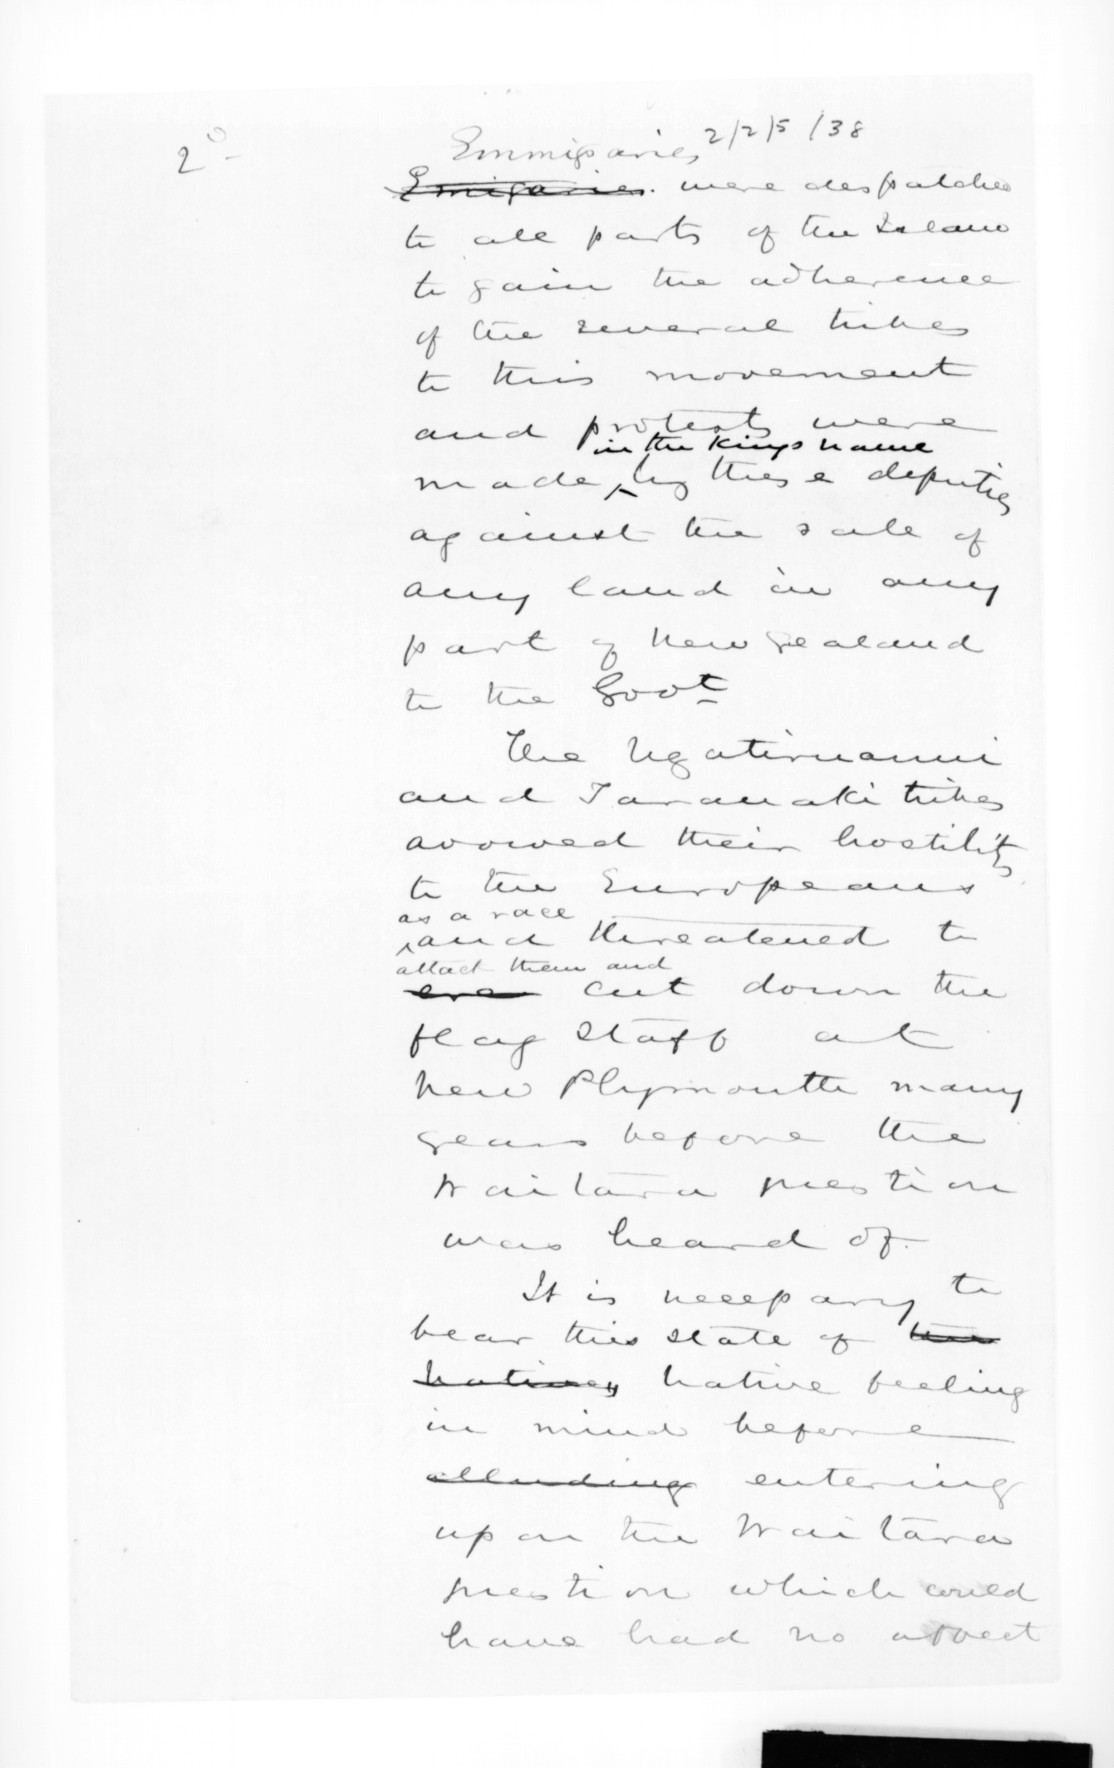 2º
2/2/5/38
Emmissaries
Emissaries were despatched
to all parts of the Island
to gain the adherence
of the several tribes
to this movement
and protests were
in the Kings name
made by these deputies
against the sale of
any land in any
part of New Zealand
to the Govt
The Ngatiruanui
and Taranaki tribes
avowed their hostility
to the Europeans
as a race
and threatened to
attack them and
cut down the
flag staff at
New Plymouth many
years before the
Waitara question
was heard of.
It is necessary to
bear this state of the
Natives native feeling
in mind before
alluding entering
upon the Waitara
question which could
have had no effect